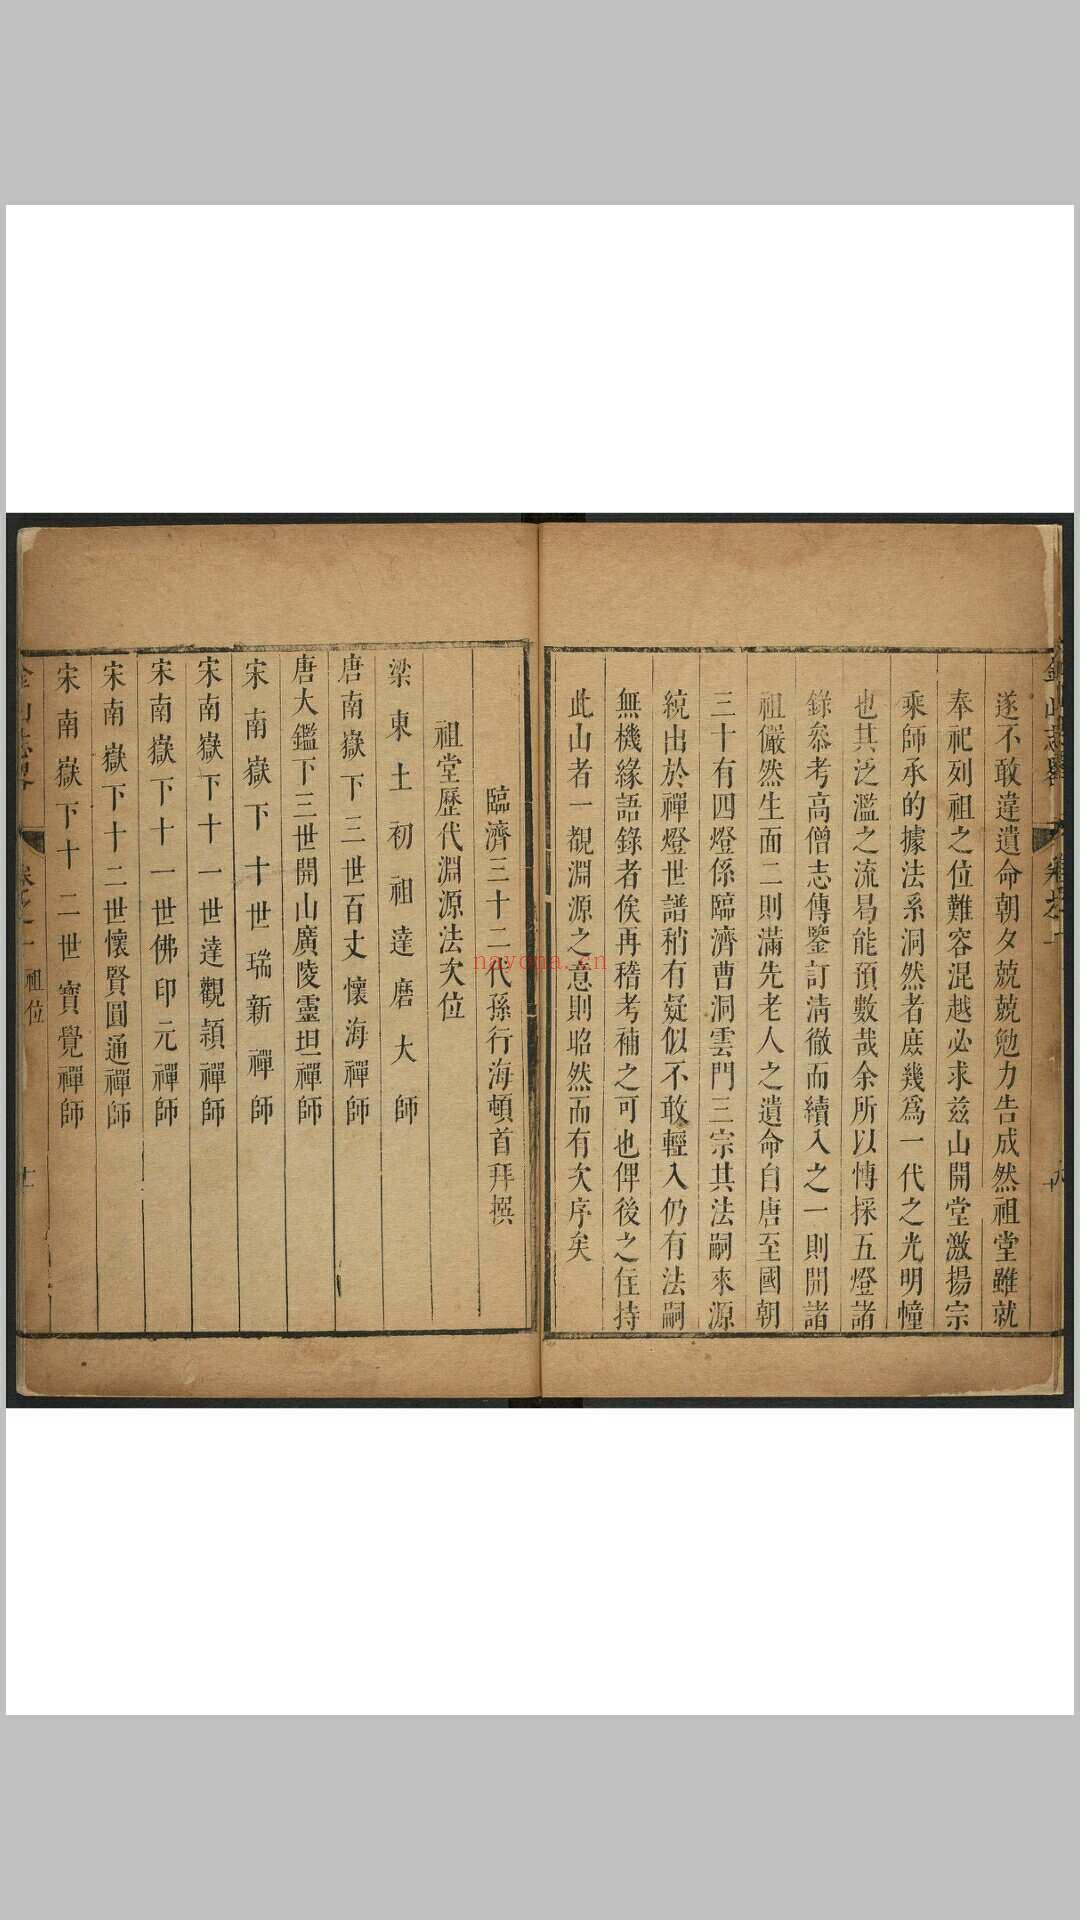 金山志畧
卷之一
遂不敢違遺命朝夕兢兢勉力告成然祖堂雖就
奉祀列祖之位難容混越必求兹山開堂激揚宗
乘師承的據法系洞然者庶幾爲一代之光明幢
也其泛濫之流曷能預數哉余所以愽採五燈諸
錄叅考高僧志傳鑒訂清徹而續入之一則開諸
祖儼然生面二則滿先老人之遺命自唐至國朝
三十有四燈係臨濟曹洞雲門三宗其法嗣來源
統出於禪燈世譜稍有疑似不敢輕入仍有法嗣
無機緣語錄者俟再稽考補之可也俾後之住持
此山者一覩淵源之意則昭然而有次序矣
臨濟三十二代孫行海頓首拜撰
祖堂歷代淵源法次位
梁東土初祖達磨大師
唐南嶽下三世百丈懷海禪師
唐大鑑下三世開山廣陵靈坦禪師
宋南嶽下十世瑞新禪師
宋南嶽下十一世達觀頴禪師
宋南嶽下十一世佛印元禪師
宋南嶽下十二世懷賢圓通禪師
宋南嶽下十二世寶覺禪師
金山志畧
卷之一
祖位
十
nayona.cn